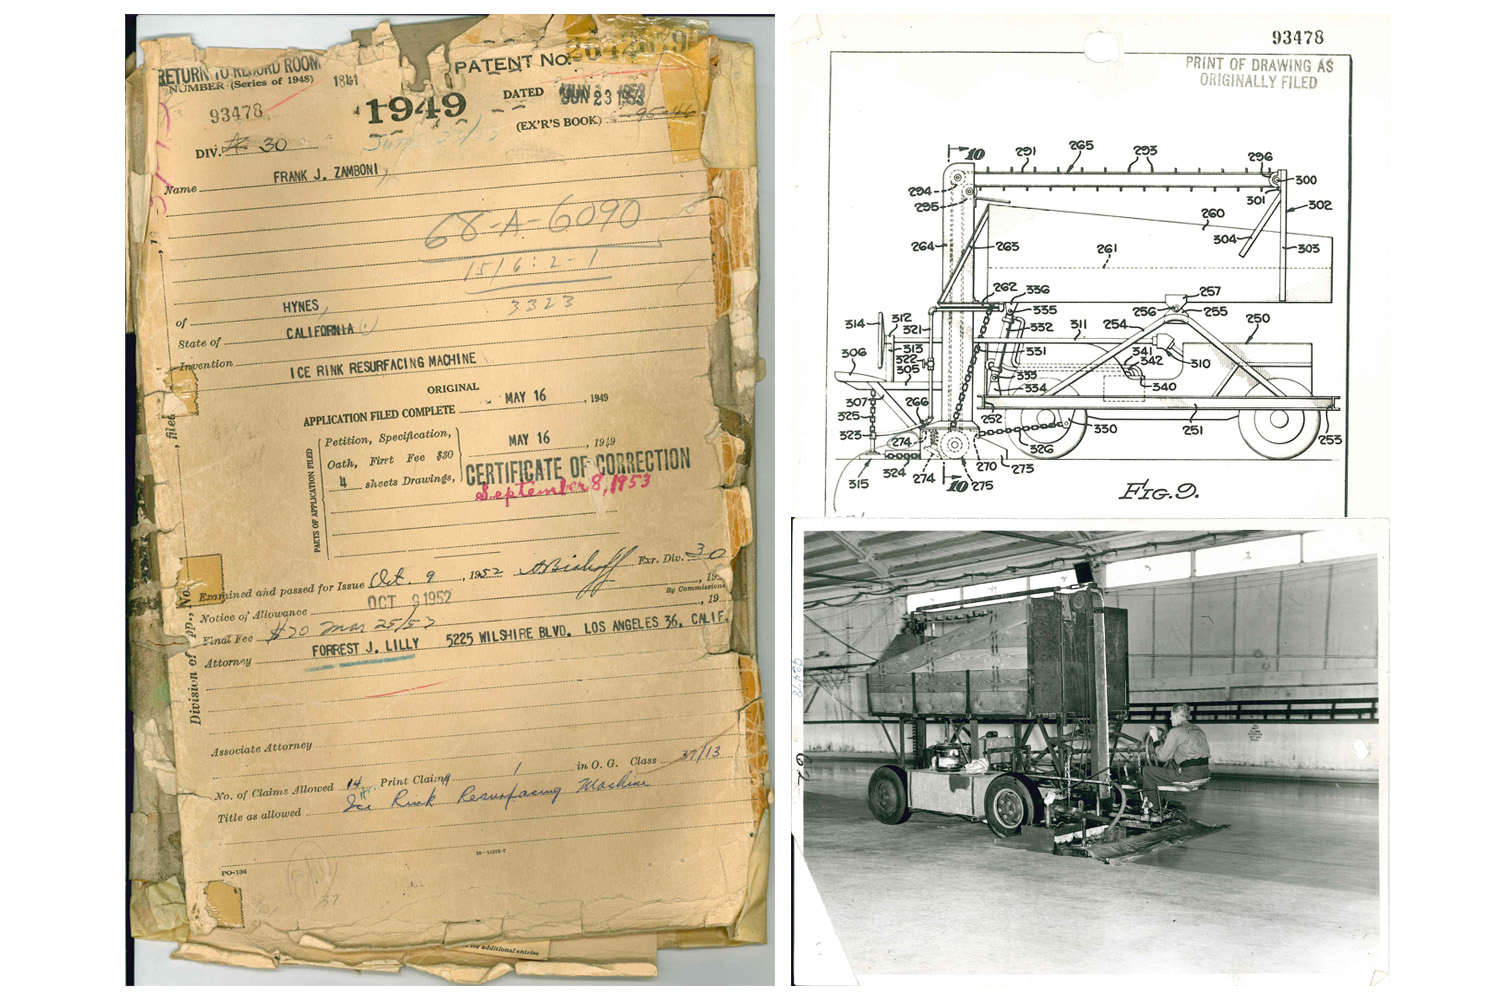 RETURN TO RECORD ROOM
NUMBER (Series of 1948) 1841
PATENT No. 2642679
93478
1949
DATED JUN 23 1953
(EX'R'S BOOK) 95-46
DIV. 30
Name FRANK J. ZAMBONI,
68-A-6090
15/6:2-1
3323
of HYNES,
State of CALIFORNIA
Invention ICE RINK RESURFACING MACHINE
ORIGINAL
APPLICATION FILED COMPLETE MAY 16 , 1949
PARTS OF APPLICATION FILED
Petition, Specification,
Oath, First Fee $30
4 sheets Drawings,
MAY 16 , 1949
CERTIFICATE OF CORRECTION
September 8, 1953
Examined and passed for Issue Oct. 9 , 1952 Exr. Div. 30
OCT 9 1952
Notice of Allowance , 19
By Commissioner
Final Fee $30 Mar 25/53 , 19
Attorney FORREST J. LILLY 5225 WILSHIRE BLVD. LOS ANGELES 36, CALIF.
Division of App., No. , filed
Associate Attorney
No. of Claims Allowed 14 Print Claim 1 in O. G. Class 37/13
Title as allowed Ice Rink Resurfacing Machine
16-11572-7
PO-136
37
for additional entries
93478
PRINT OF DRAWING AS
ORIGINALLY FILED
10 291 265 293 296
294 300
301
295 302
260
264 263 304 303
261
262 336 257
314 312 321 335 256 255 250
332 311 254
313
322 331 341 310
306 305 342
333 340
307 334
325 266 252 330 251 253
323 274 326
324 270 273
315 274 10 275
FIG. 9.
93478